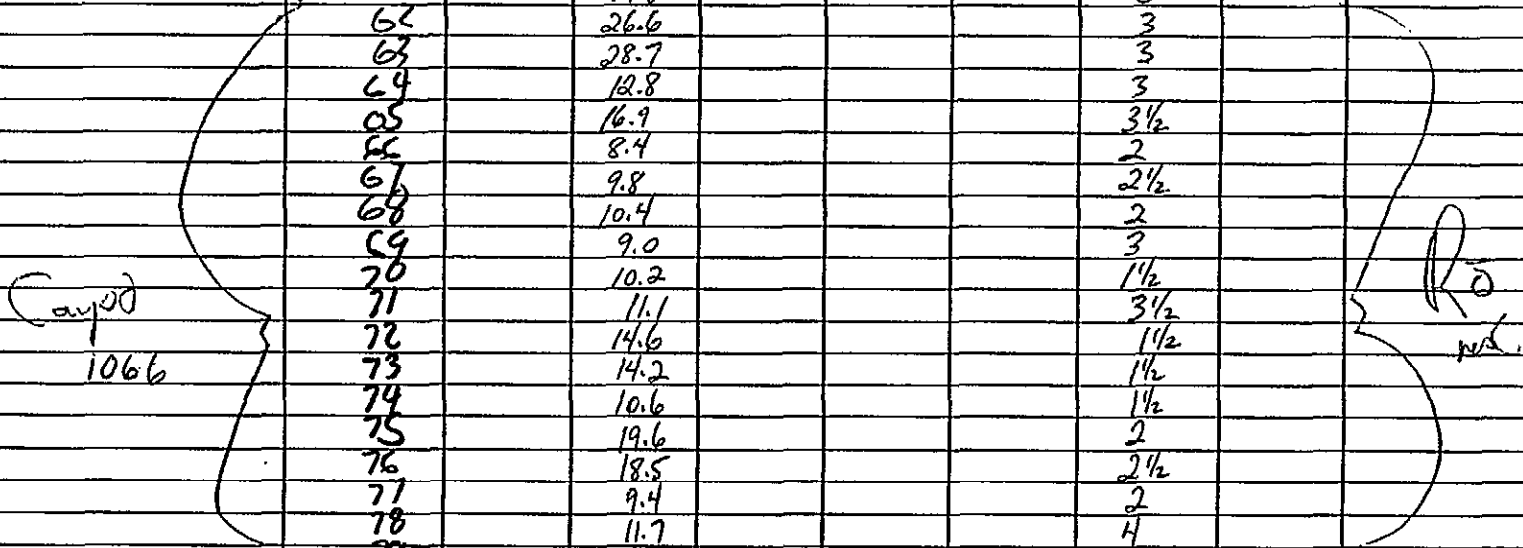 62 26.6 3
63 28.7 3
64 12.8 3
65 16.9 3½
66 8.4 2
67 9.8 2½
68 10.4 2
69 9.0 3
70 10.2 1½
71 11.1 3½
72 14.6 1½
1066 73 14.2 1½
74 10.6 1½
75 19.6 2
76 18.5 2½
77 9.4 2
78 11.7 4